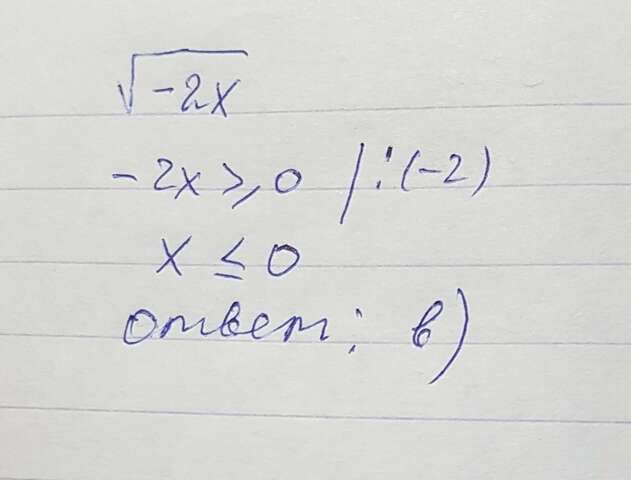 √-2x
-2x ⩾ 0 / : (-2)
x ≤ 0
ответ: в)